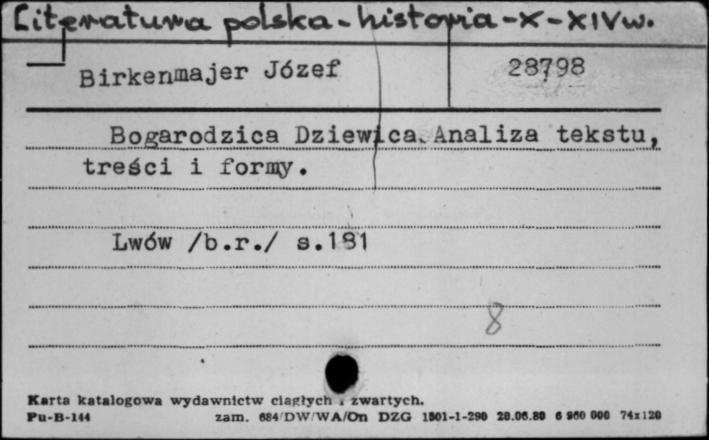 Literatura polska-historia-X-XIVw.
Birkenmajer Józef 28798
Bogarodzica Dziewica. Analiza tekstu,
treści i formy.
Lwów /b.r./ s.181
8
Karta katalogowa wydawnictw ciągłych i zwartych.
Pu-B-144 zam. 684/DW/WA/On DZG 1501-1-290 20.06.80 6 960 000 74x120